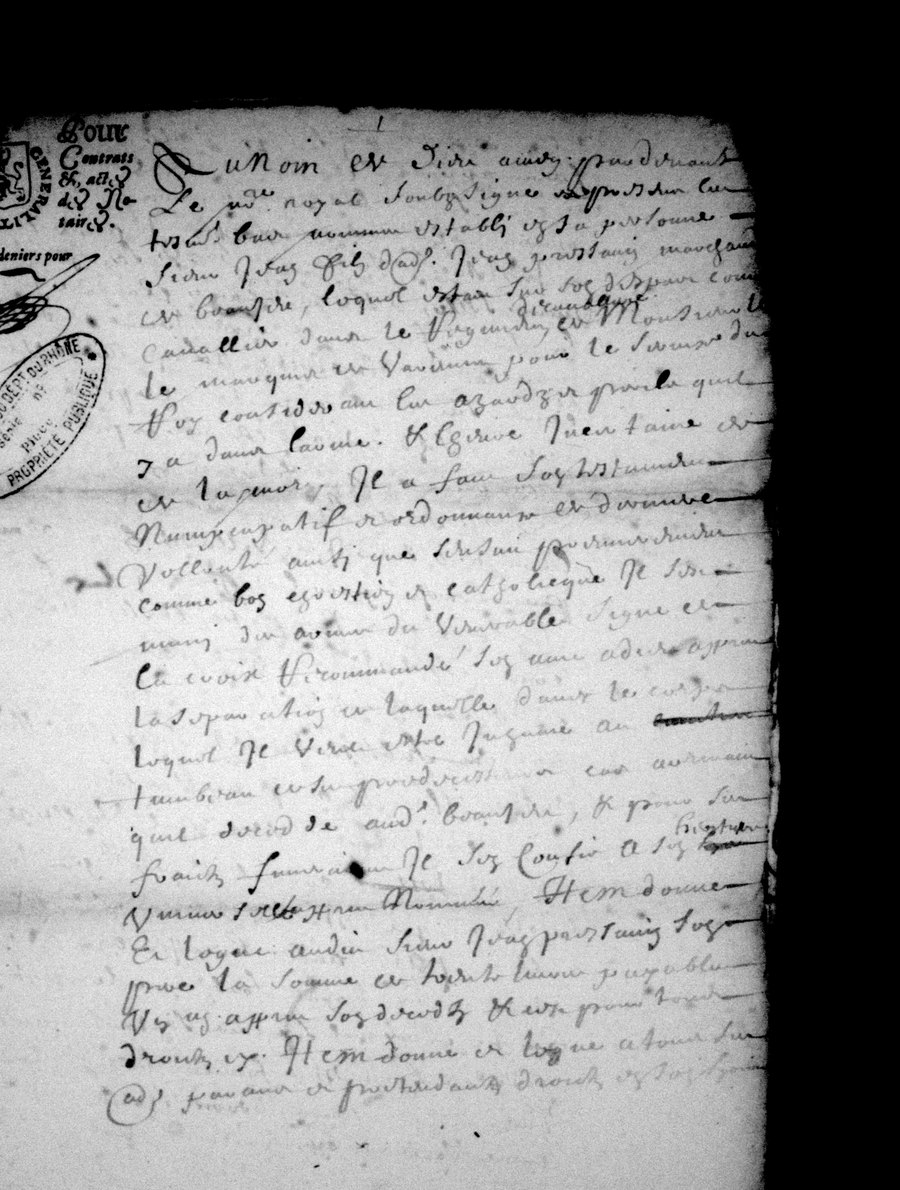 Pour
Contrats
&, actes
des No-
taires.
GENERALIT
deniers pour
DU DEPT DU RHONE
PROPRIÉTÉ PUBLIQUE
1
Au Nom de Dieu amen par devant
Le nore royal soubzsigne et presen les
tesms bas nommes establi en sa personne
sieur Jean filz d'ad. Jean marchand
de beaujeu, lequel estan sur son despar comme
Cavallier dans le Regiment de Monsieur
le marquis de Varenne pour le service du
Roy consideran les azardz perilz quil
y a dans larme. & lheure Incertaine de
de la mort, Il a fait son testament
Numcupatif et ordonnance de derniere
Vollonté ainsi que sensui premierement
comme bon chrestien et catholicque Il sest
muni des armes du Venerable signe de
la croix Recommandé son ame a dieu appres
la separation de laquelle dans le corps
lequel Il veux estre Inhumé au
tumbeau de ses predecesseurs cas avenant
quil decedde aud. beaujeu, & pour ses
fraictz funeraires Il sen Confie a son heritier
Universel appres Nommé, Item donne
Et legue audit sieur Jean son
pere la somme de trente livres payable
Un an appres son decedz & ce pour tous
droictz &. Item donne et legue a tous ses
ad. parans et pretendantz droictz en son